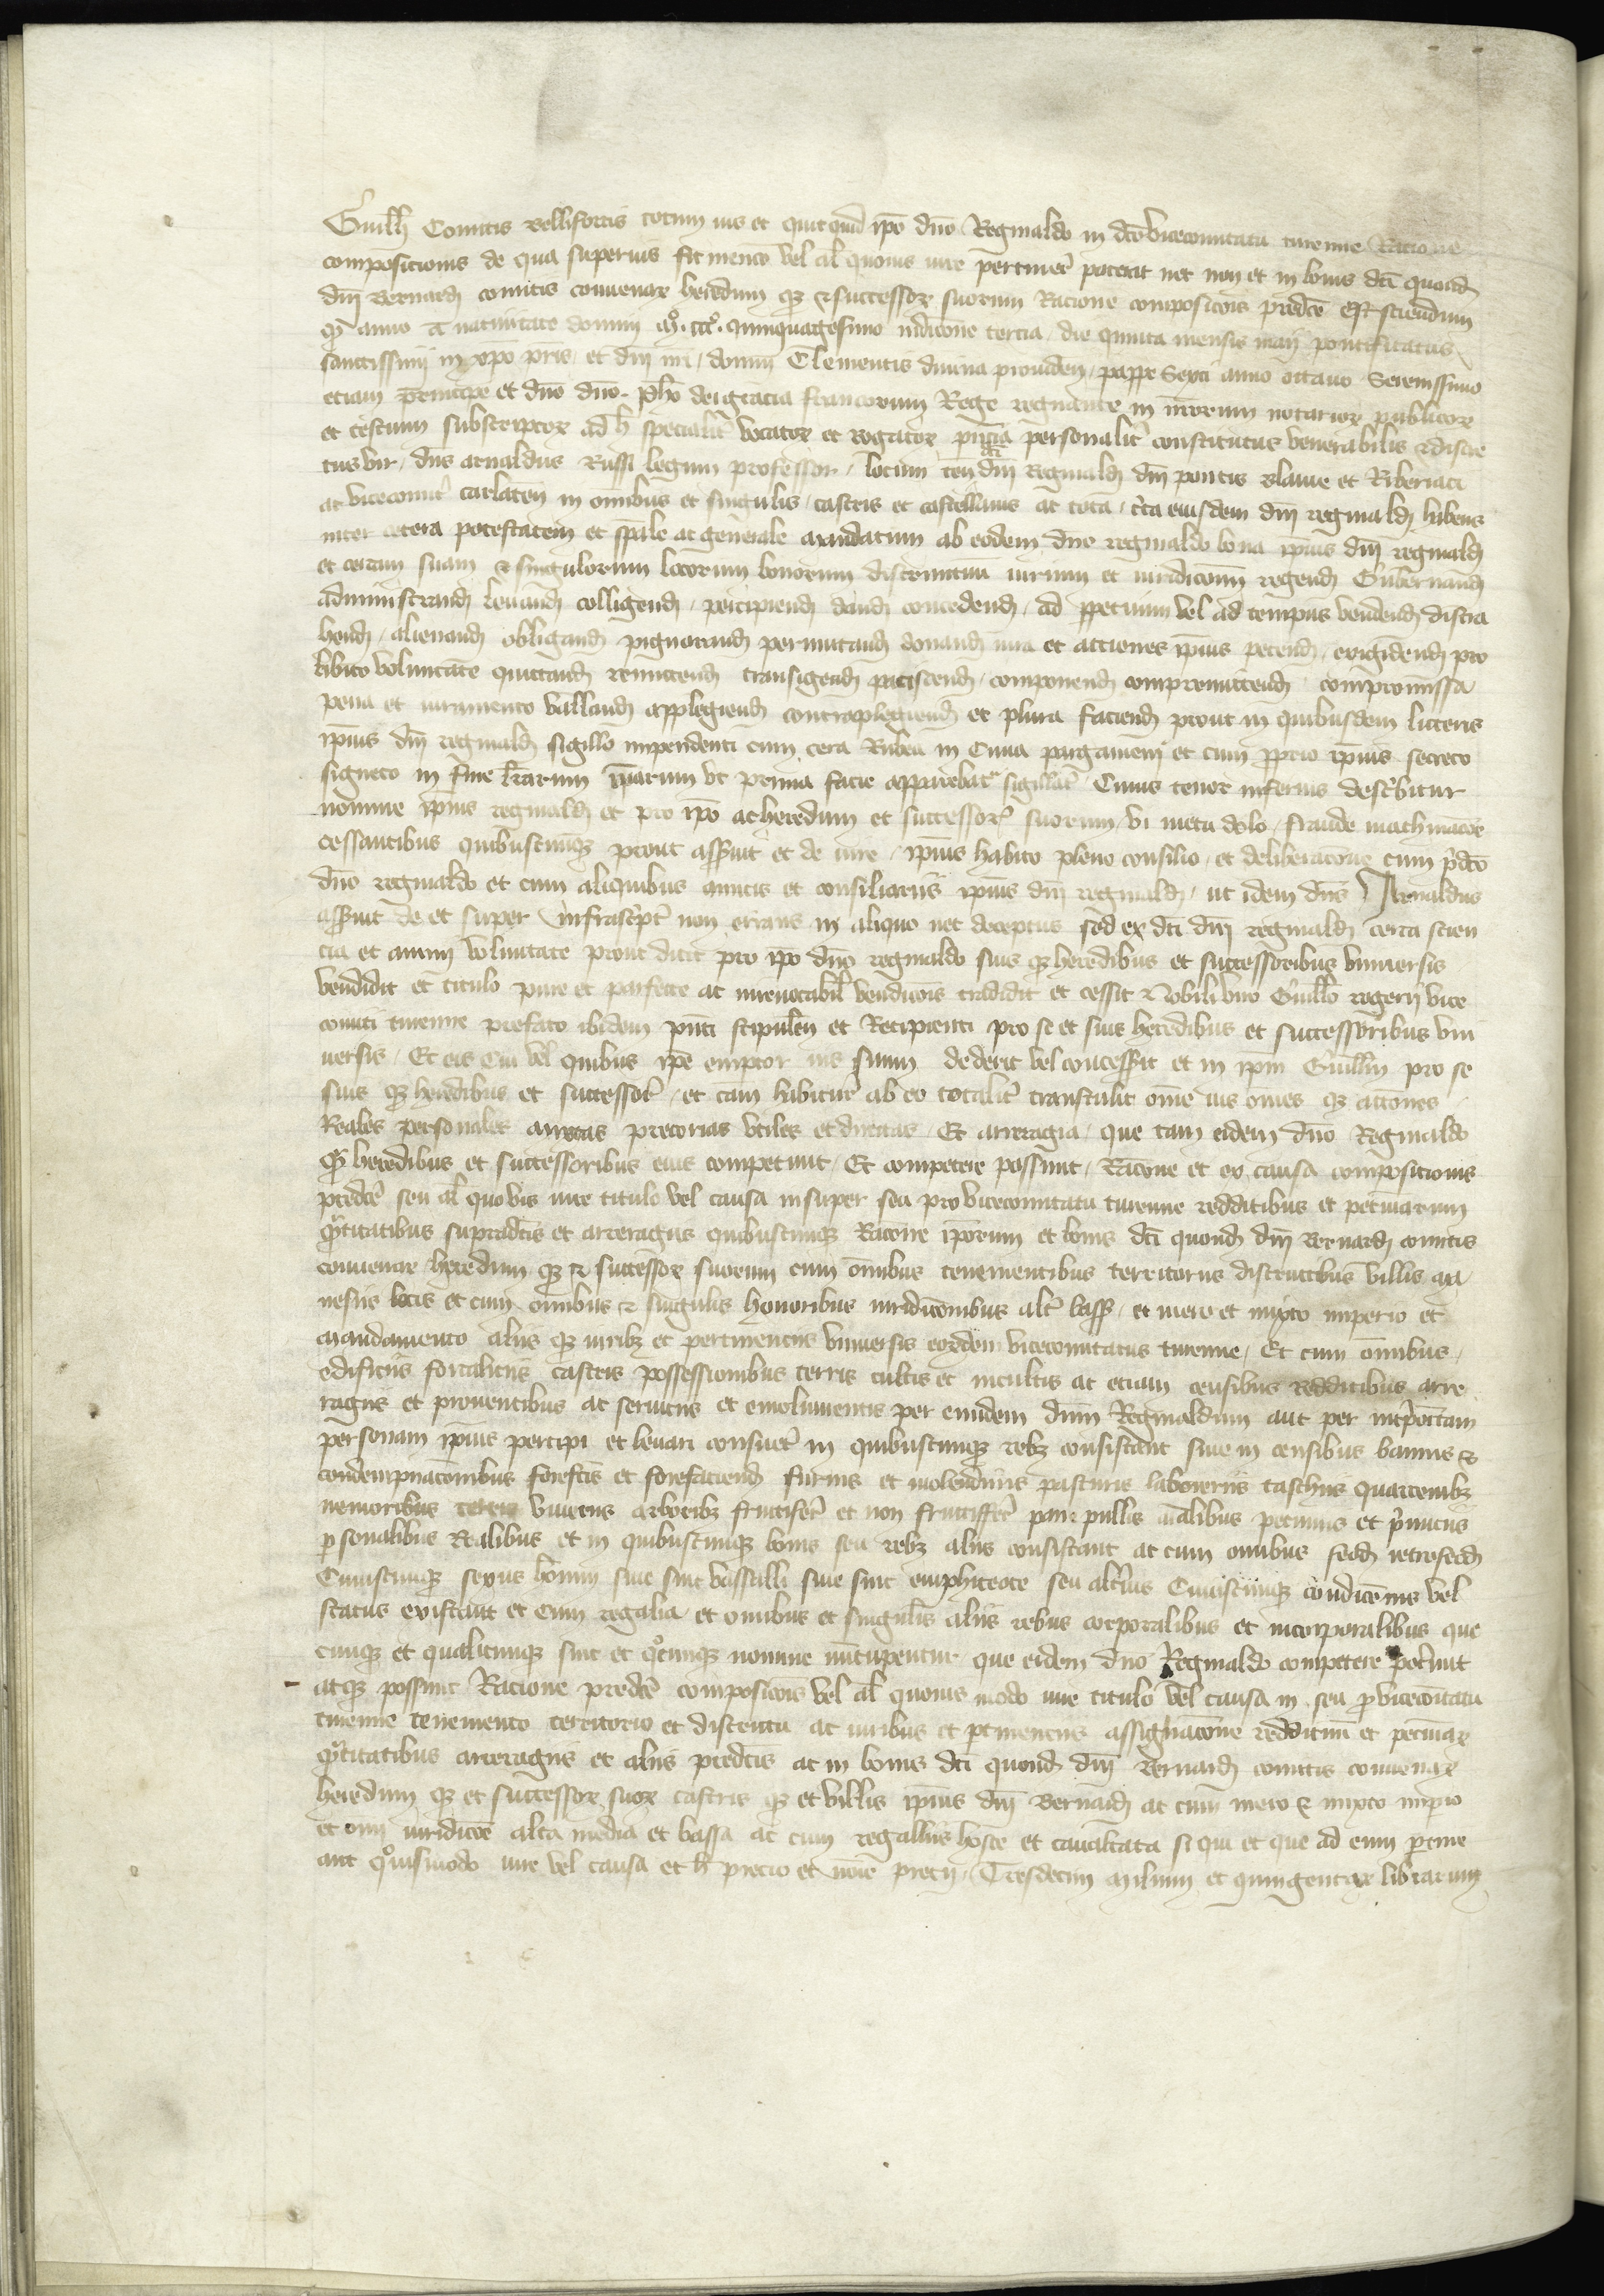 Guillĩ Comitis Bellifortis totum ius et quitquid ip̃o dño Reginaldo in dco vicecomitatu turenne Ratione
composicionis de qua superius fit mencõ vel al̃ quouis iure pertiner̃ poterat nec non et in bonis dc̃i quond̃
dñi Bernard̃ comitis conuenar̃ heredum qȝ et successor̃ suorum Racione composicõis predc̃e Est sciendum
qȝ anno a natiuitate domini mº. cccº. quinquagesimo indicc̃one tercia, die quinta mensis maij pontificatus
sanctissimi in xp̃o pr̃is, et dñi nr̃i, domini Clementis diuina prouiden̄, pappe Sexti anno octauo Serenissimo
etiam principe et dño dño. Ph̃o dei gracia francorum Rege regnante in nr̃orum notarior̃ publicor̃
et testium subscriptor̃ ad h̃ specialit̃ vocator̃ et rogator̃ pñcia personalit̃ constitutus venerabilis et discre
tus vir, dñs arnaldus Russi legum professor, locum ten̄ dc̃i dñi Reginald̃ dñi pontis blauie et Riberiaci
ac vicecomit̃ carlaten̄ in omnibus et singulis, castris et castellanis ac tota, t̃ra eiusdem dñi reginald̃ habens
inter cetera potestatem et sp̃ale ac generale mandatum ab eodem dño reginaldo bona ip̃ius dñi reginald̃
et terram suam et singulorum locorum bonorum districtuum iurium et iuridicc̃onum regend̃ Gubernand̃
administrand̃ leuand̃ colligend̃, percipiend̃ dand̃ concedend̃, ad p̱petuum vel ad tempus vendend̃ distra
hend̃, alienand̃ obligand̃ pignorand̃ permutand̃ donand̃ iura et acciones ip̃ius petend̃, exigidend̃ pro
libito voluntate quittand̃ remittend̃ transigend̃ paciscend̃, componend̃ compromittend̃ compromissa
pena et iuramento valland̃ applegiend̃ contraplegiend̃ et plura faciend̃ prout in quibusdem litteris
ip̃ius dñi reginald̃ sigillo inpendenti cum cera Rubea in Cauda pargameni et cum ꝓprio ip̃ius secreto
signeto in fine lr̃arum ip̃arum vt prima facie apparebat sigillat̃ Cuius tenor inferius describitur
nomine ip̃ius reginald̃ et pro ip̃o ac heredum et successor̃ suorum, vi metu dolo, fraude machinac̃oe
cessantibus quibuscunqȝ prout asseruit et de iure, ip̃ius habito pleno consilio, et deliberac̃one cum p̃dc̃o
dño reginaldo et cum aliquibus amicis et consiliariis ip̃ius dñi reginald̃, ut idem dñs Arnaldus
asseruit de et super infrascript̃ non errans in aliquo nec deceptus sed ex dc̃i dñi reginald̃ certa scien
cia et animi voluntate prout dicit pro ip̃o dño reginaldo suis qȝ heredibus et successoribus vniuersis
vendidit et titulo pure et parfecte ac irreuocabil̃ vendicc̃ois tradidit et cessit Nobili viro Guill̃o rogerij vice
comiti turenne prefato ibidem pñti stipulan̄ et Recipienti pro se et suis heredibus et successoribus vni
uersis, Et eis cui vel quibus ip̃e emptor ius suum dederit vel concesserit et in ip̃m Guill̃m pro se
suis qȝ heredibus et successor̃, et c̃am habitur̃ ab eo totalit̃ transtulit om̃e ius om̃es qȝ acc̃ones
Reales personales mixtas pretorias vtiles et directas, Et arreragia, que tam eidem dño Reginaldo
qȝ heredibus et successoribus eius competunt, Et competere possunt, Rac̃one et ex causa composicionis
predc̃e seu al̃ quo vis iure titulo vel causa insuper seu pro vicecomitatu turenne redditibus et pecuniarum
qũtitatibus supradc̃is et arreragiis quibuscunqȝ Rac̃one ip̃orum et bonis dc̃i quond̃ dñi Bernard̃ comitis
conuenar̃ heredum qȝ et successor̃ suorum cum omnibus tenementibus territoriis districtibus villis ma
nesiis locis et cum omnibus et singulis honoribus iuridicc̃onibus alt̃ bass̃, et mero et mixto imperio et
mandamento aliis qȝ iuribȝ et pertinenciis vniuersis eor̃dem vicecomitatus turenne, Et cum omnibus,
edificiis fortaliciis castris possessionibus terris cultis et incultis ac etiam censibus redditibus arre
ragiis et prouentibus ac seruiciis et emolumentis per eundem dñum Reginaldum aut per int̃positam
personam ip̃ius percipi et leuari consuet̃ in quibuscunqȝ rebȝ consistant siue in censibus bannis et
condempnacionibus forefc̃is et forefaciend̃ furnis et molendinis pasturis laboreriis taschiis quartonibȝ
nemoribus viuentis arboribȝ fructifer̃ et non fructiffer̃ pane pullis ac̃alibus pecuniis et prouentis
p̱sonalibus Realibus et in quibuscunqȝ bonis seu rebȝ aliis consistant ac cum omnibus feod̃ retrofeod̃
Cuiuscunqȝ sexus hominũ siue sint vassalli siue sint emphiteote seu alterius Cuiuscunqȝ condic̃onis vel
status existant et cum regalia, et omnibus et singulis aliis rebus corporalibus et incorporalibus que
cunqȝ et qualicunqȝ sint et qºcunqȝ nomine nũcupentur que eidem dño Reginaldo competere pot̃unt
atqȝ possunt Racione predc̃e composicõis vel al̃ quouis modo iure titulo vel causa in seu ꝓ vicecõitatu
turenne tenemento territorio et districtu ac iuribus et ꝑtinenciis assignac̃one reddituũ et pecuniar̃
qũtitatibus arreragiis et aliis predc̃is ac in bonis dc̃i quond̃ dñi Bernard̃ comitis conuenar̃
heredum qȝ et successor̃ suor̃ castris qȝ et villis ip̃ius dñi Bernard̃ ac cum mero et mixto imp̱io
et om̃i iuridicc̃oe alta media et bassa ac cum regaliis hoste et caualcata si qui et que ad eum ꝑtine
ant qºuismodo iure vel causa et h̃ precio et noĩe precij, Tresdecim milium et quingentar̃ librarum